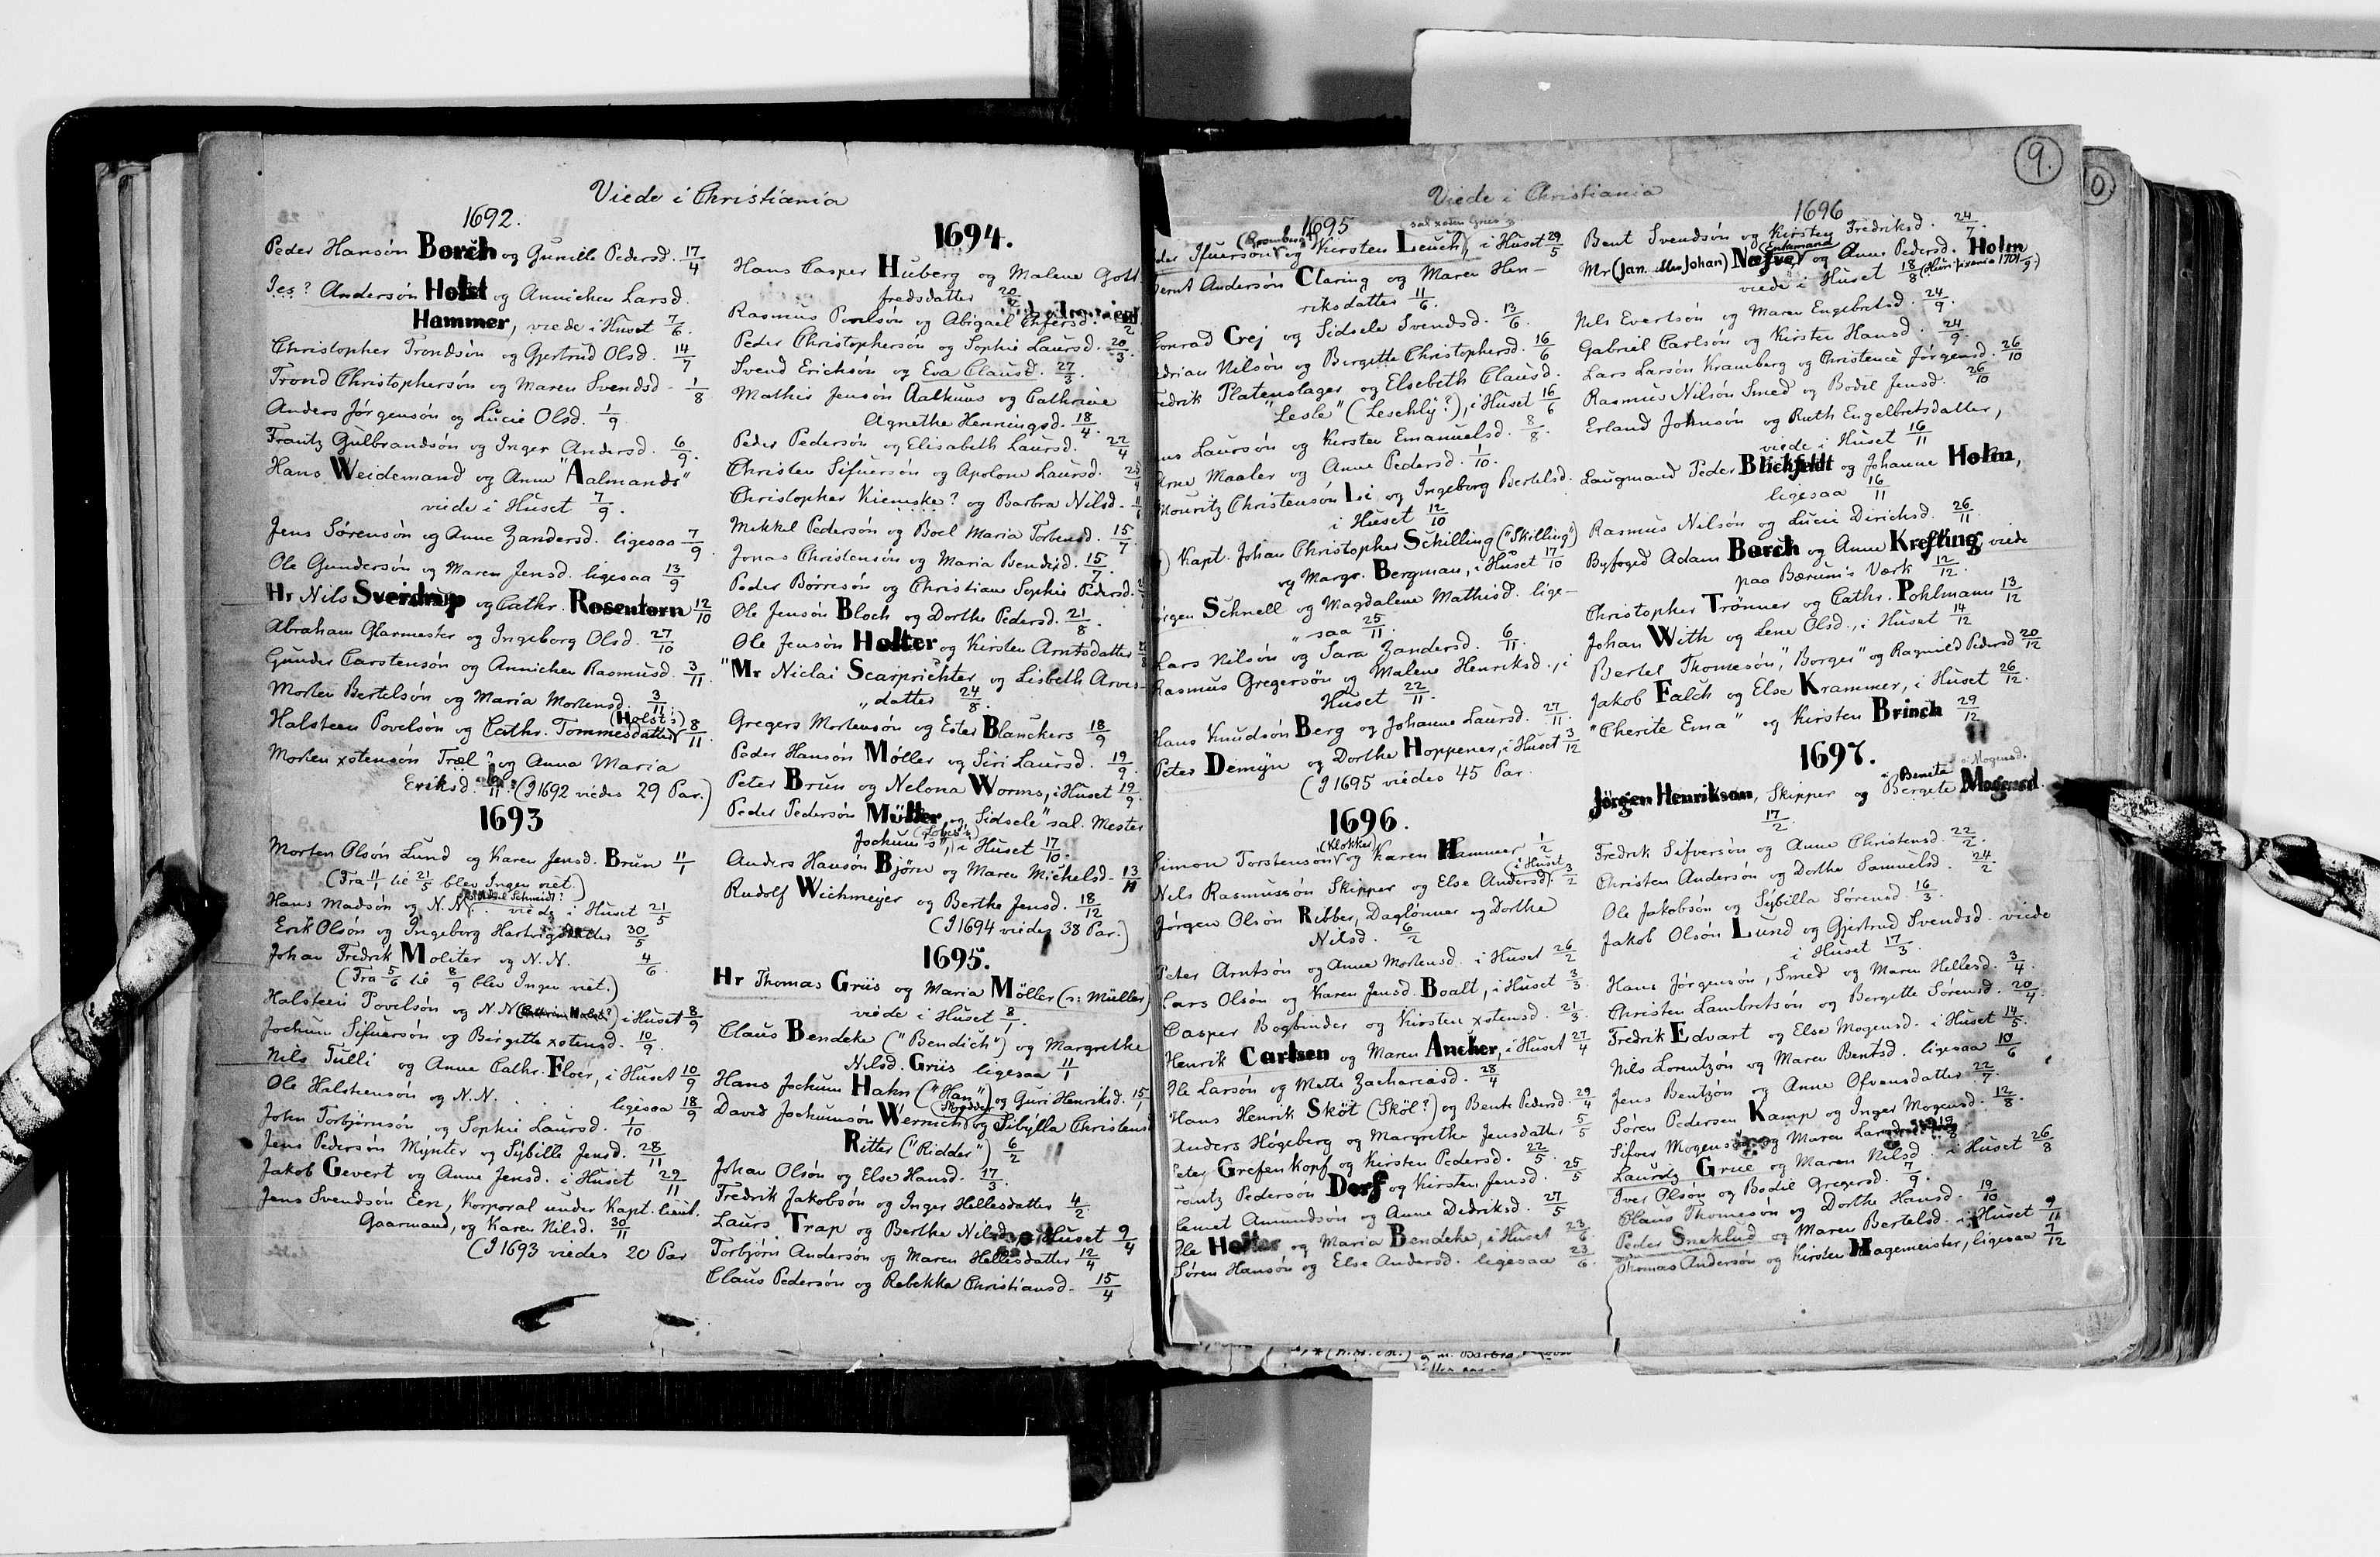 Viede i Christiania
1692.
Peder Hansøn Borch og Gunille Pedersd. 17/4
Jes? Andersøn Holst og Annichen Larsd.
Hammer, viede i Huset 7/6.
Christopher Trondsøn og Gjertrud Olsd. 14/7
Trond Christophersøn og Maren Svendsd. 1/8
Anders Jörgensøn og Lucie Olsd. 1/9
Frantz Gulbrandsøn og Inger Andersd. 6/9.
Hans Weidemand og Anne "Aalmands"
viede i Huset 7/9.
Jens Sørensøn og Anne Zandersd. ligesaa 7/9
Ole Gundersøn og Maren Jensd. ligesaa 13/9
Hr Nils Sverdrup og Cathr. Rosentorn 12/10
Abraham Glarmester og Ingeborg Olsd. 27/10
Gunder Carstensøn og Annichen Rasmusd. 3/11.
Morten Bertelsøn og Maria Mortensd. 3/11
(Holst's)
Halsteen Povelsøn og Cathr. Tommesdatter 8/11.
Morten xstensøn Træl? og Anna Maria
Eriksd. (I 1692 viedes 29 Par.)
1693
Morten Olsøn Lund og Karen Jensd. Brun 11/1
(Fra 11/1 til 21/5 blev Ingen viet.)
Hans Madsøn og N.N. viede i Huset 21/5
Erik Olsøn og Ingeborg Hartvigsdatter 30/5
Johan Fredrik Moliter og N.N. 4/6
(Fra 5/6 til 8/9 blev Ingen viet.)
Halsteen Povelsøn og N.N. i Huset 8/9
Jochum Sifuersøn og Birgitte xstensd. 10/9.
Nils Tulli og Anne Cathr. Floer, i Huset 10/9
Ole Halstensøn og N.N. ligesaa 18/9
John Torbjørnsøn og Sophie Laursd. 1/10
Jens Pedersøn Mynter og Sybille Jensd. 28/11
Jakob Gevert og Anne Jensd. i Huset 29/11
Jens Svendsøn Een, Korporal under Kapt. lieut.
Gaarmand, og Karen Nilsd. 30/11
(I 1693 viedes 20 Par
1694.
Hans Casper Huberg og Malene Gott
fredsdatter 20/2
Rasmus Povelsøn og Abigael
Peder Christophersøn og Sophie Laursd. 20/3.
Svend Ericksøn og Eva Clausd. 27/3.
Mathis Jensøn Aalkuus og Cathrine
Agnethe Henningsd. 18/4.
Peder Pedersøn og Elisabeth Laursd. 22/4
Christen Sifuersøn og Apolone Laursd.
Christopher Kiemske? og Barbra Nilsd.
Mikkel Pedersøn og Boel Maria Torbensd. 15/7
Jonas Christensøn og Maria Bendixd. 15/7.
Peder Börresøn og Christiane Sophie Pedersd.
Ole Jensøn Bloch og Dorthe Pedersd. 21/8.
Ole Jensøn Holter og Kirsten Arntsdatter
"Mr Niclai Scarprichter og Lisbeth Arves-
datter 24/8.
Gregers Mortensøn og Ester Blanckers 18/9
Peder Hansøn Møller og Siri Laursd. 19/9.
Peter Brun og Nelona Worms, i Huset 19/9.
Peder Pedersøn Müller og Sidsele "sal. Mester
Jochum's", i Huset 17/10.
Anders Hansøn Björn og Maren Michelsd. 13/11
Rudolf Wichmeyer og Berthe Jensd. 18/12
(I 1694 viedes 38 Par.)
1695.
Hr Thomas Griis og Maria Möller (ɔ: Müller)
viede i Huset 8/1.
Claus Bendeke ("Bendich") og Margrethe
Nilsd. Griis ligesaa 11/1
Hans Jochum Hahn ("Han") og Guri Henriksd. 15/1
David Jochumsøn Wernich og Sibylla Christens
Ritter ("Ridder") 6/2
Johan Olsøn og Else Hansd. 17/3.
Fredrik Jakobsøn og Inger Hellesdatter 4/2
Laurs. Trap og Berthe Nilsd., i Huset 9/4
Torbjörn Andersøn og Maren Hellesdatter 12/4
Claus Pedersøn og Rebekka Christiansd. 15/4
9.
Viede i Christiania
1695
Kirsten Leuch, i Huset 29/5
Andersøn Claring og Maren Hen-
riksdatter 11/6.
Conrad Crej og Sidsele Svendsd. 13/6.
Nilsøn og Bergitte Christophersd. 16/6
Platenslager og Elsebeth Clausd.
"Lesle" (Leschly?), i Huset 16/6
Laursøn og Kirsten Emanuelsd. 8/8.
Arne Maaler og Anne Pedersd. 1/10.
Mouritz Christensøn Li og Ingeborg Bertelsd.
i Huset 12/10
Kapt. Johan Christopher Schilling ("Skilling")
og Margr. Bergman, i Huset 17/10
Schnell og Magdalene Mathisd. lige-
saa 25/11.
Lars Nilsøn og Sara Zandersd. 6/11.
Rasmus Gregersøn og Malene Henriksd., i
Huset 22/11.
Hans Knudsøn Berg og Johanne Laursd. 27/11.
Peter Demyn og Dorthe Hoppener, i Huset 3/12
(I 1695 viedes 45 Par.
1696.
(Klokker)
Simon Torstensøn og Karen Hammer 1/2
Nils Rasmussøn Skipper og Else Andersd. i Huset 3/2
Jørgen Olsøn Ribber, Daglönner og Dorthe
Nilsd. 6/2
Peter Arntsøn og Anne Mortensd. i Huset 26/2
Lars Olsøn og Karen Jensd. Boalt, i Huset 3/3
Casper Bogbinder og Kirsten xstensd. 21/3.
Henrik Carlsen og Maren Ancher, i Huset 27/4
Ole Larsøn og Mette Zachariasd. 28/4
Hans Henrik Sköt (Sköl?) og Bente Pedersd. 29/4
Anders Högeberg og Margrethe Jensdatter 5/5
Peter Grefenkopf og Kirsten Pedersd. 22/5.
Frantz Pedersøn Dorf og Kirsten Jensd. 25/5
Amundsøn og Anne Dedriksd. 27/5
Ole Holter og Maria Bendeke, i Huset 23/6
Søren Hansøn og Else Andersd. ligesaa 23/6.
1696
Bent Svendsøn og Kirsten Fredriksd. 24/7.
(Enkemand)
Mr (Jan. eller Johan) Næfve og Anne Pedersd. Holm
viede i Huset 18/8
Nils Evertsøn og Maren Engebretsd. 24/9.
Gabriel Carlsøn og Kirsten Hansd. 24/9.
Lars Larsøn Kramberg og Christence Jörgensd. 26/10
Rasmus Nilsøn Smed og Bodil Jensd. 26/10
Erland Johnsøn og Ruth Engelbretsdatter,
viede i Huset 16/11
Laugmand Peder Blichfeldt og Johanne Holm,
ligesaa 16/11
Rasmus Nilsøn og Lucie Dirichsd. 26/11.
Byfoged Adam Borch og Anne Krefting, viede
paa Bærum's Værk 12/12.
Christopher Trönner og Cathr. Pohlmann 13/12
Johan With og Lene Olsd., i Huset 14/12
Bertel Thomesøn, "Borger" og Ragnild Pedersd. 20/12
Jakob Falch og Else Krammer, i Huset 26/12.
"Cherite Ema" og Kirsten Brinch 29/12
1697.
Jørgen Henriksøn, Skipper og Bergete Mogensd.
17/2.
Fredrik Sifversøn og Anne Christensd. 22/2.
Christen Andersøn og Dorthe Samuelsd. 24/2
Ole Jakobsøn og Sybilla Sørensd. 16/3.
Jakob Olsøn Lund og Gjertrud Svendsd. viede
i Huset 17/3.
Hans Jörgensøn, Smed og Maren Hellesd. 3/4.
Christen Lambretsøn og Bergette Sørensd. 20/4.
Fredrik Edvart og Else Mogensd. i Huset 14/5.
Nils Lorentzøn og Maren Bentsd. ligesaa 10/6
Jens Bentzøn og Anne Ofvensdatter 22/7.
Søren Pedersen Kamp og Inger Mogensd. 12/8.
Sifver Mogensøn og Maren
Lauritz Grue og Maren Nilsd. i Huset 26/8
Iver Olsøn og Bodil Gregersd. 7/9.
Claus Thomesøn og Dorthe Hansd. 19/10
Peder Sneklud og Maren Bertelsd. i Huset 9/11
Thomas Andersøn og Kirsten Hagemeister, ligesaa 7/12